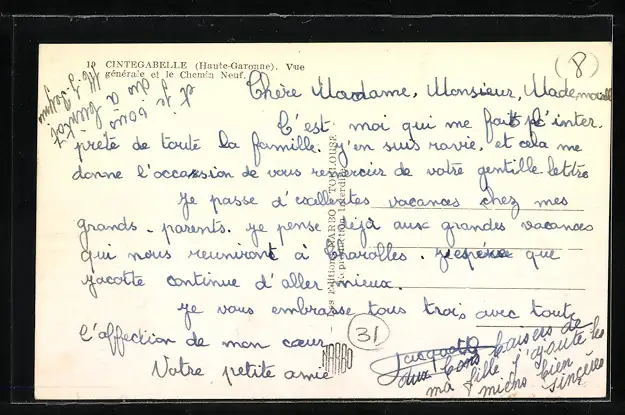 10 CINTEGABELLE (Haute-Garonne). Vue
générale et le Chemin Neuf.
(8)
Chère Madame, Monsieur, Mademoiselle
C'est moi qui me fait l'inter.
prête de toute la famille. J'en suis ravie, et cela me
donne l'occasion de vous remercier de votre gentille lettre
Je passe d'excellentes vacances chez mes
grands-parents. Je pense déjà aux grandes vacances
qui nous réuniront à Charolles. J'espère que
Jacotte continue d'aller mieux.
Je vous embrasse tous trois avec toute
l'affection de mon cœur
Votre petite amie
Jacquotte
31
aux bons baisers de
ma fille j'ajoute les
miens bien
sincères
et je
vous dis
à bientôt
Les Editions NARBO - TOULOUSE
Reproduction Interdite
NARBO